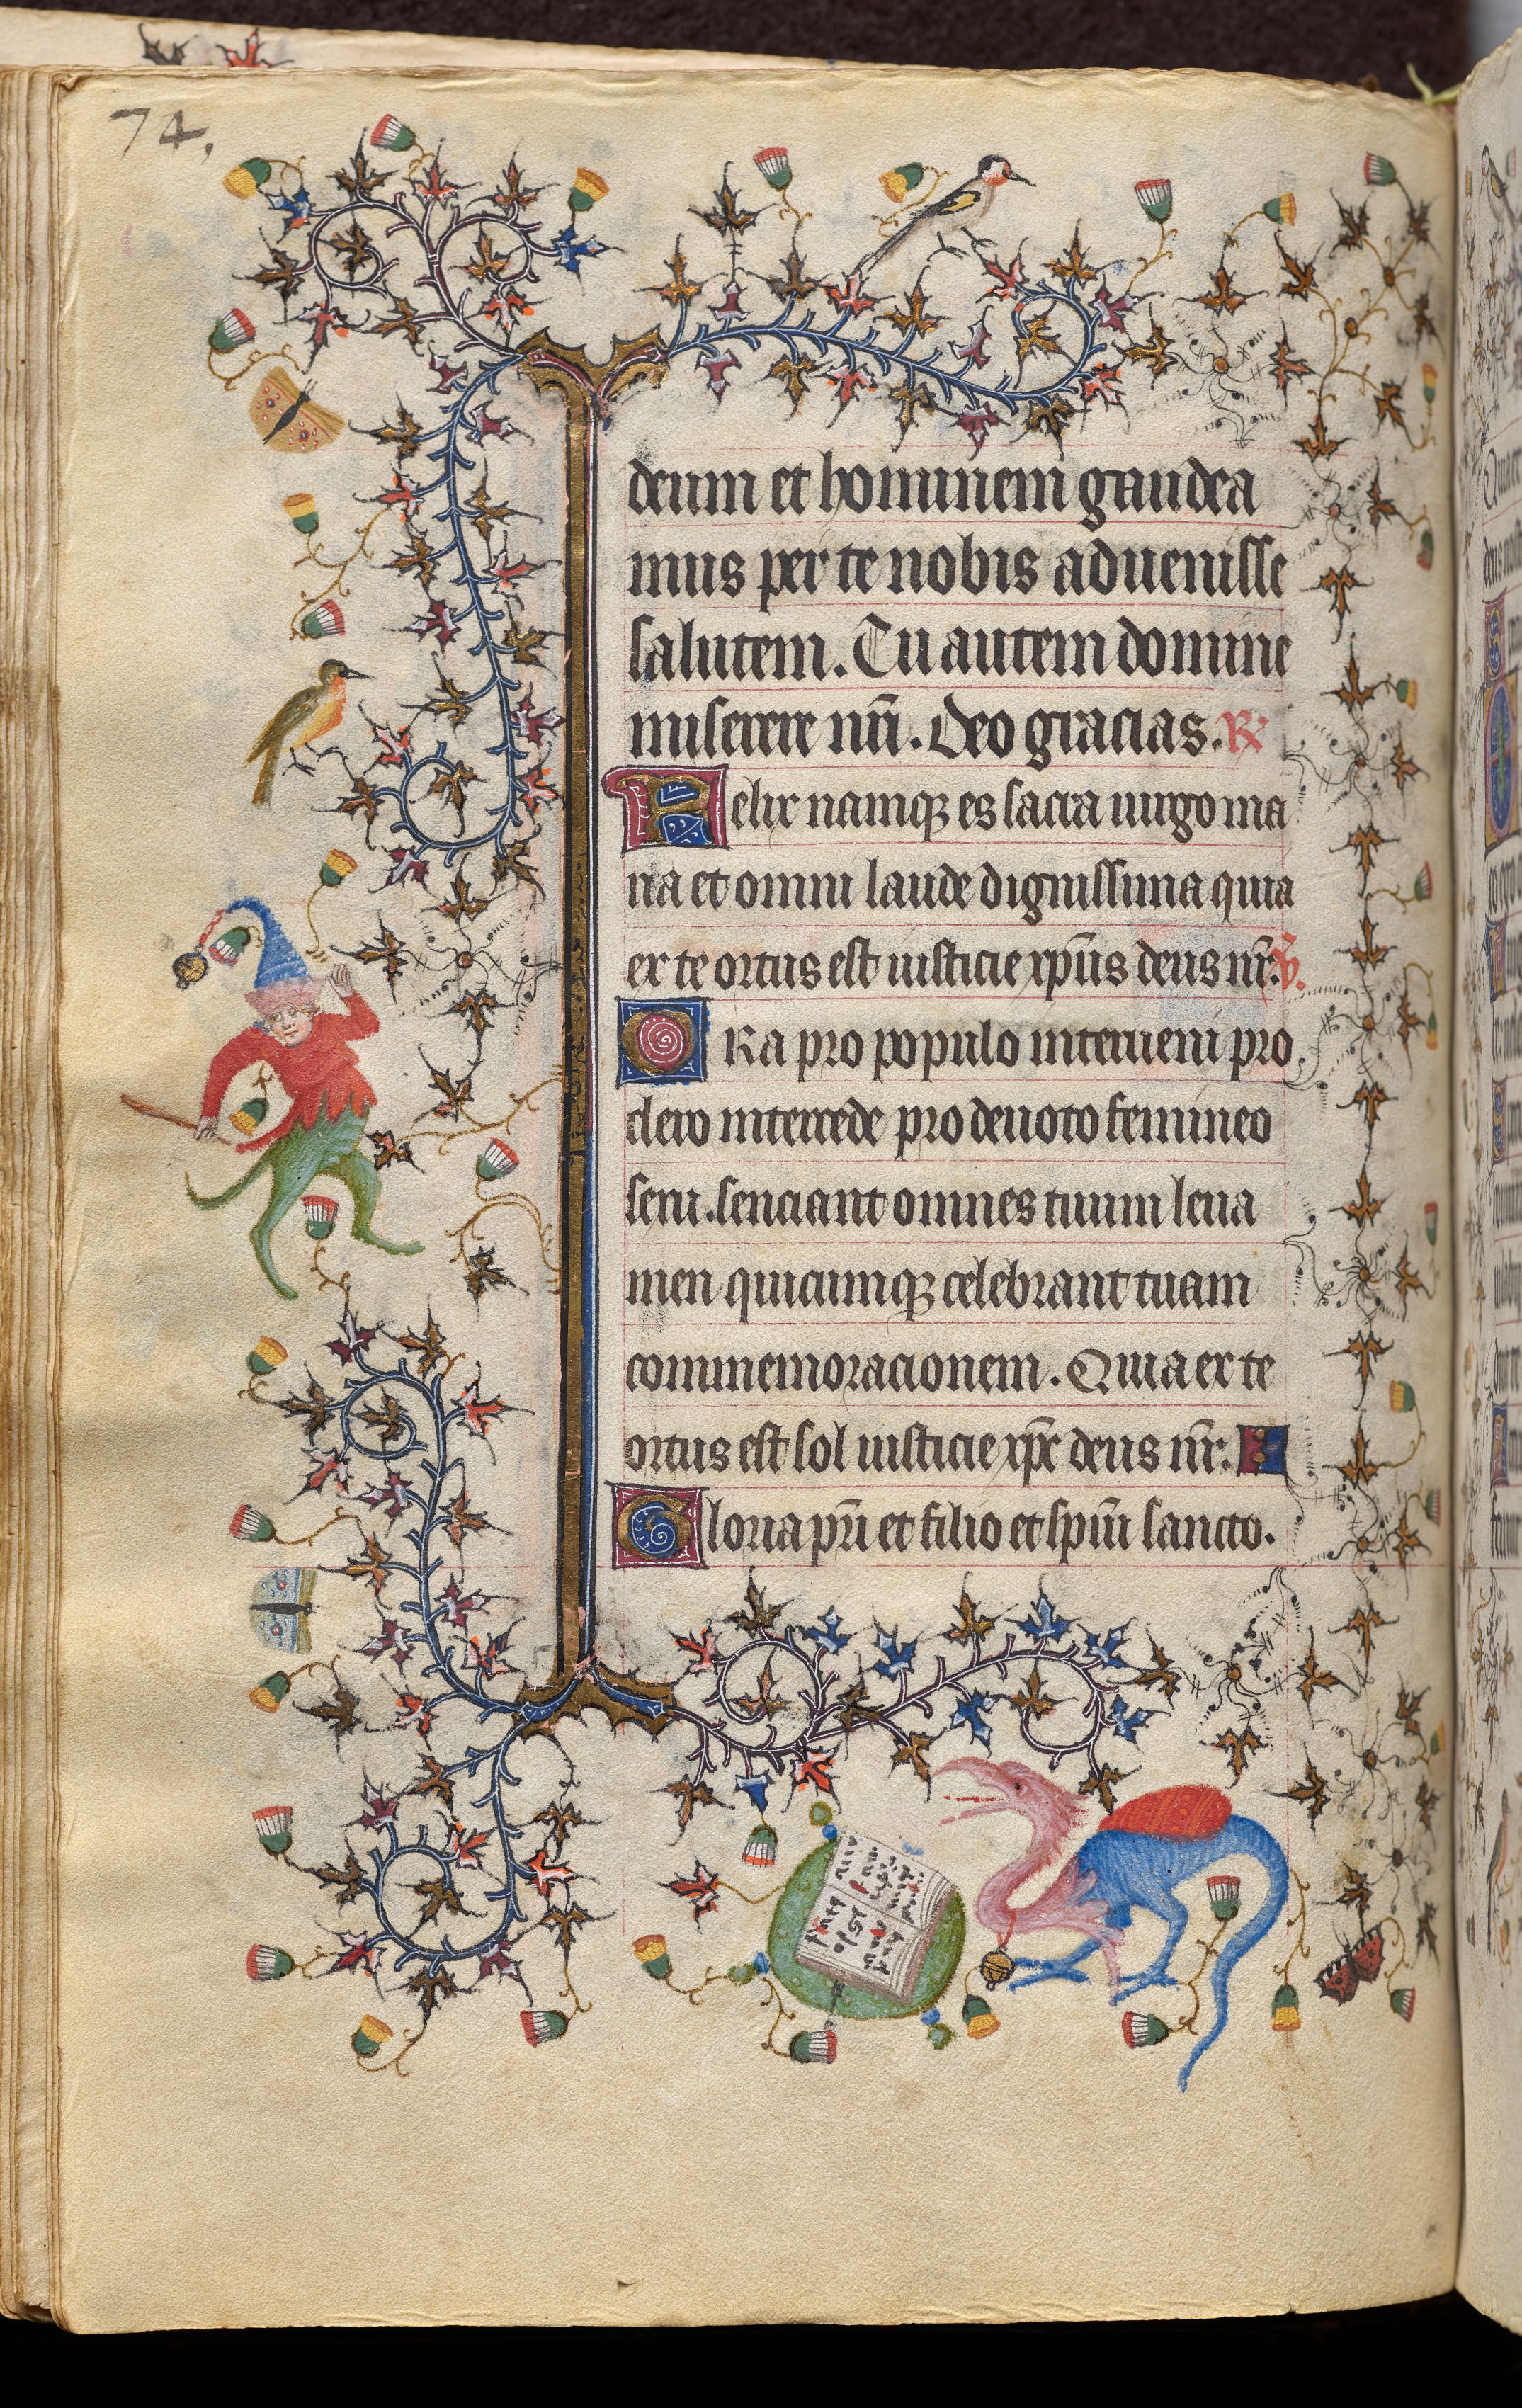 74.
deum et hominem gaudea
mus per te nobis aduenisse
salutem. Tu autem domine
miserere nr̄i. Deo gracias. ℟
Felix namqꝫ es sacra uirgo ma
ria et omni laude dignissima quia
ex te ortus est iusticie xp̄us deus nr̄. ℣.
ORa pro populo interueni pro
clero intercede pro deuoto femineo
sexu. senciant omnes tuum leua
men quicumqꝫ celebrant tuam
commemoracionem. Quia ex te
ortus est sol iusticie xp̄c deus nr̄.
Gloria pr̄i et filio et sp̄ui sancto.